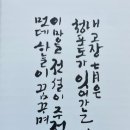 내 고장 七月은
청포도가 익어가는
이 마을 전설이 주저
먼데 하늘이 꿈꾸며